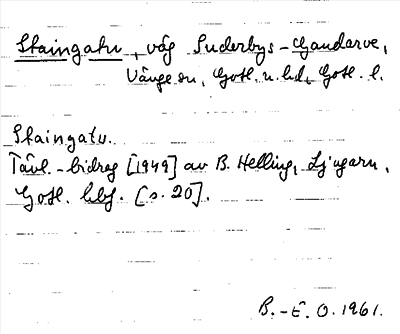 Staingatu, väg Suderbys-Gandarve,
Vänge sn, Gotl. n. hd, Gotl. l.
Staingatu.
Tävl.-bidrag [1949] av B. Helling, Ljugarn,
Gotl. lbf. [s. 20].
B.-E. O. 1961.